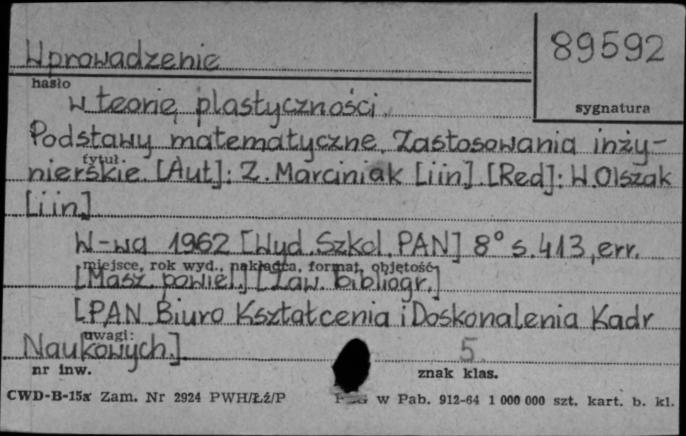 89592
Wprowadzenie
hasło
sygnatura
w teorię plastyczności.
Podstawy matematyczne. Zastosowania inży-
tytuł
nierskie. [Aut]: Z. Marciniak [i in]. [Red]: W. Olszak
[i in]
W-wa 1962 [Wyd. Szkol. PAN] 8° s. 413, err.
miejsce, rok wyd., nakładca, format, objętość
[Masz. powiel.] [Zaw. bibliogr.]
[PAN Biuro Kształcenia i Doskonalenia Kadr
uwagi:
Naukowych.] 5
nr inw. znak klas.
CWD-B-15a Zam. Nr 2924 PWH/Łź/P w Pab. 912-64 1 000 000 szt. kart. b. kl.